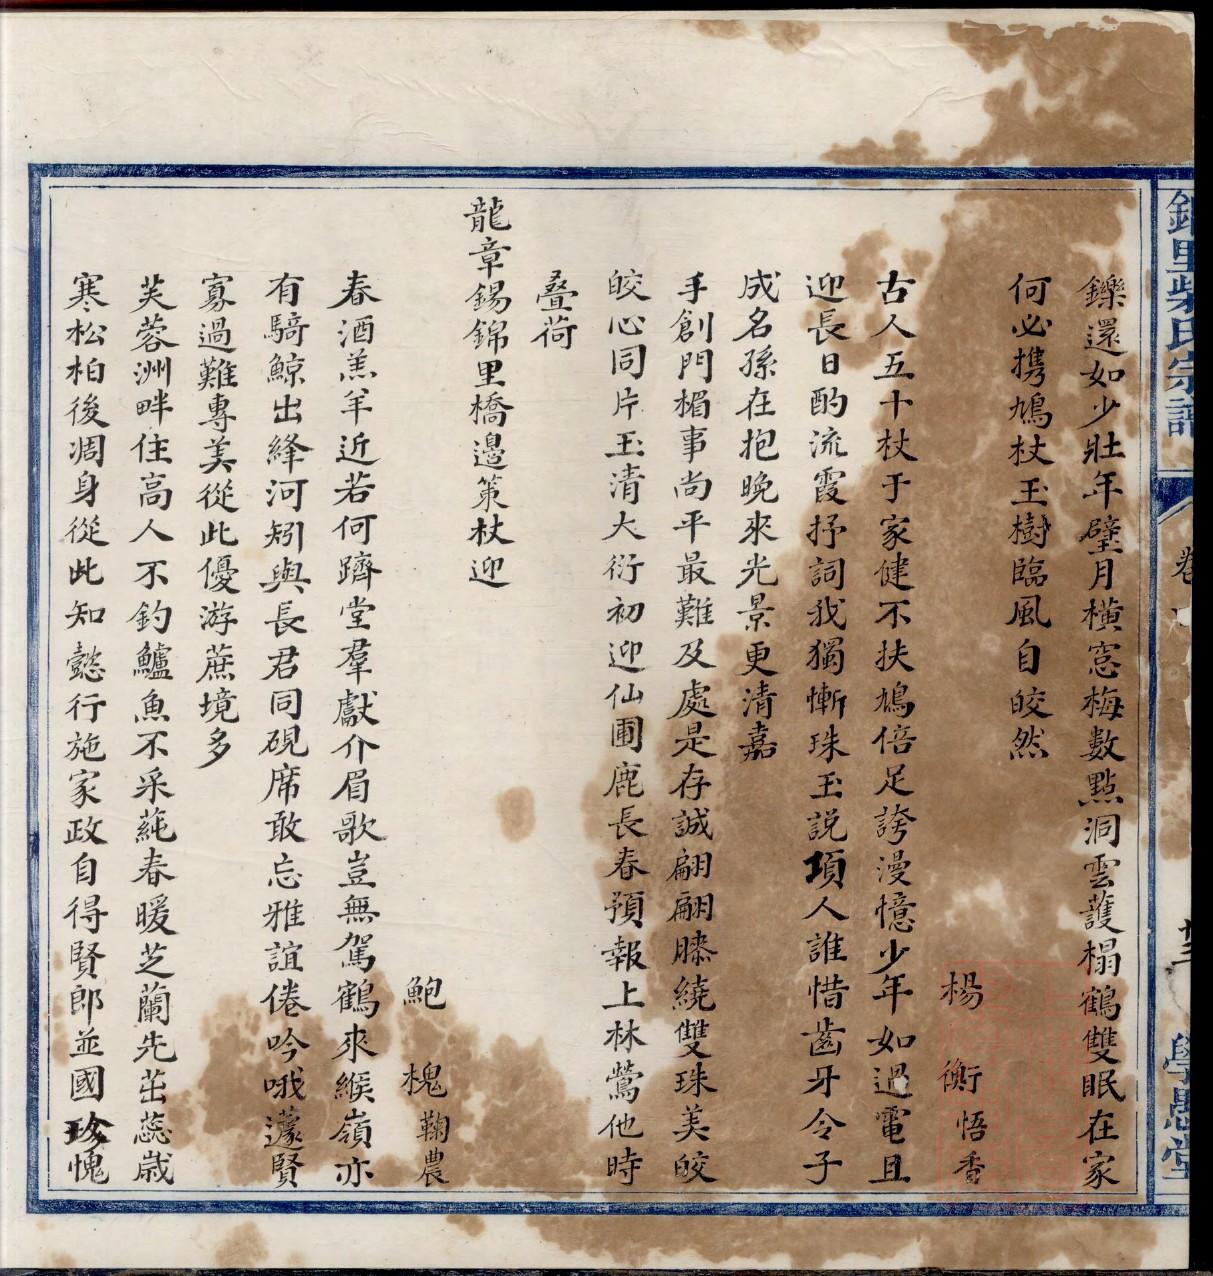 鑠還如少壯年璧月橫窓梅數點洞雲護榻鶴雙眠在家
何必携鳩杖玉樹臨風自皎然
楊衡悟香
古人五十杖于家健不扶鳩倍足誇漫憶少年如過電且
迎長日酌流霞抒詞我獨慚珠玉説項人誰惜齒牙令子
成名孫在抱晚來光景更清嘉
手創門楣事尚平最難及處是存誠翩翩膝繞雙珠美皎
皎心同片玉清大衍初迎仙圃鹿長春預報上林鶯他時
叠荷
龍章錫錦里橋邊策杖迎
鮑槐鞠農
春酒羔羊近若何躋堂羣獻介眉歌豈無駕鶴來緱嶺亦
有騎鯨出絳河矧與長君同硯席敢忘雅誼倦吟哦蘧賢
寡過難專美從此優游蔗境多
芙蓉洲畔住高人不釣鱸魚不采蒓春暖芝蘭先茁蕊歲
寒松柏後凋身從此知懿行施家政自得賢郎並國珍愧
里柴氏宗譜
卷
學思堂